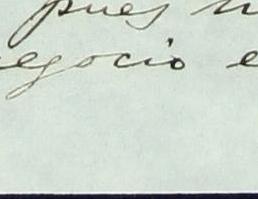 pues n
egocio e